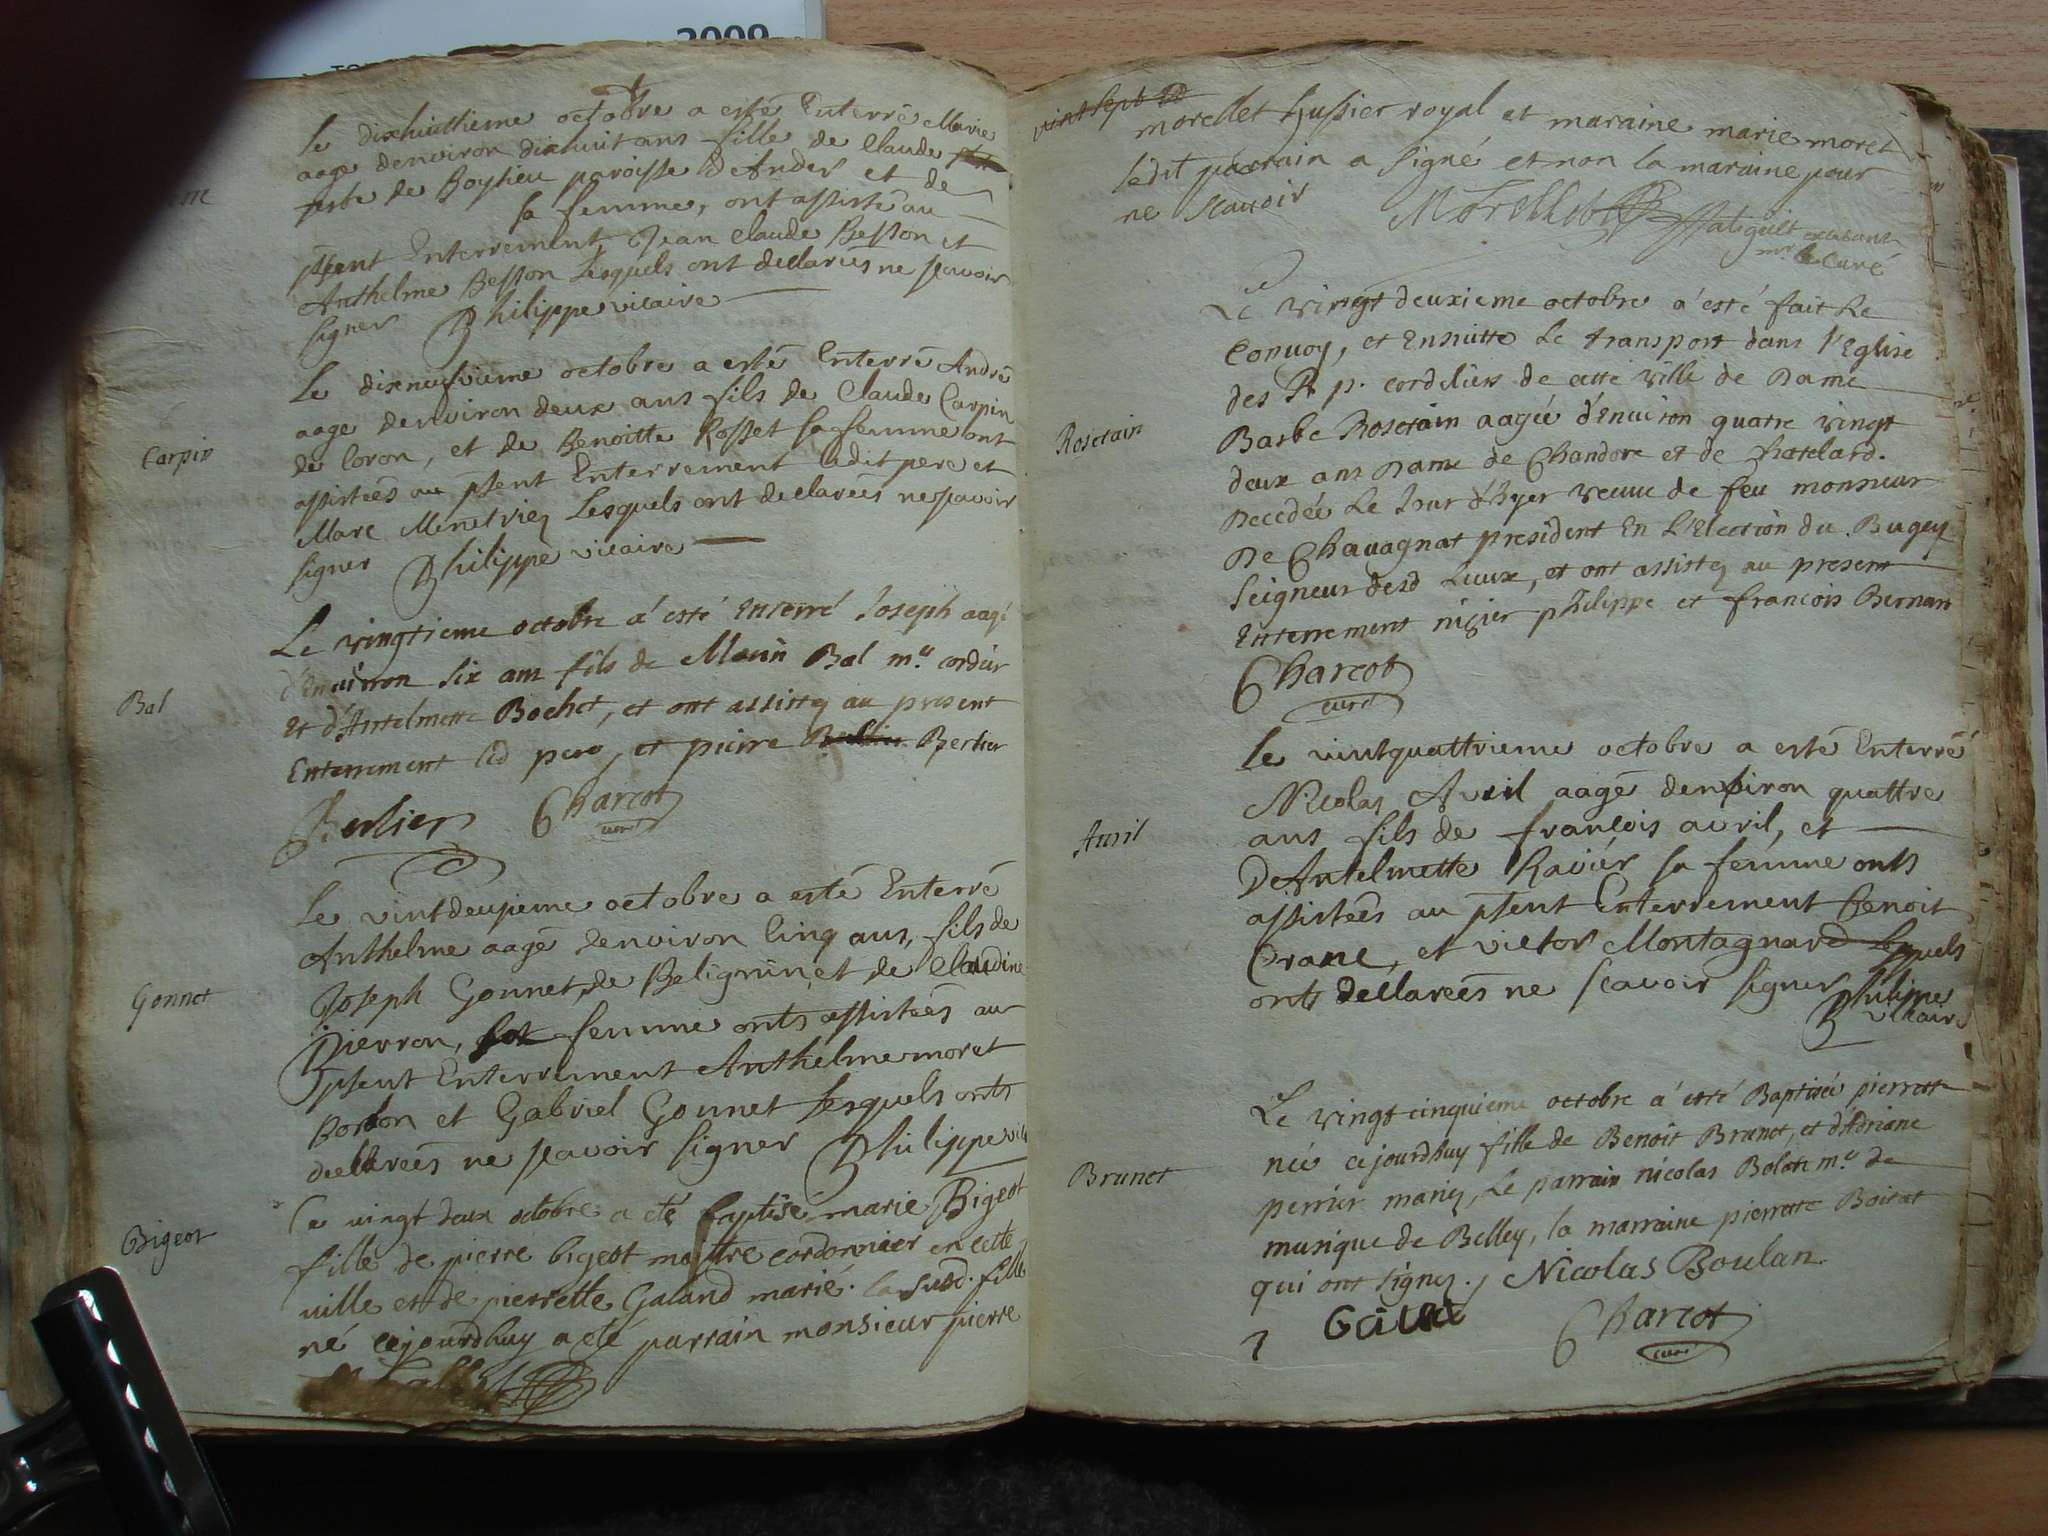 2009
Le dixhuittieme octobre a esté Enterré Marie
aage denviron dixhuit ans fille de Claude
de Boysieu paroisse d'Ander et de
sa femme, ont assisté au
pñt Enterrement Jean Claude Besson et
Anthelme Besson Lesquels ont declarees ne scavoir
signer Philippe vicaire
Carpin
Le dixneufvieme octobre a esté Enterré André
aage denviron deux ans fils de Claude Carpin
de Coron, et de Benoitte Rosset sa femme ont
assistées au pñt Enterrement ledit pere et
Marc Menetrier Lesquels ont declarées ne scavoir
signer Philippe vicaire
Bal
Le vingtieme octobre a' esté Enterré Joseph aagé
d'Environ six ans fils de Bal m.e cordier
Et d'Antelmette Bochet, et ont assistez au present
Enterrement led pere, et pierre Berlier
Berlier Charcot
curé
Gonnet
Le vintdeuxieme octobre a esté Enterré
Anthelme aagé denviron Cinq ans, fils de
Joseph Gonnet, de Belignin, et de Claudine
Pierron, sa femme onts assistées au
pñt Enterrement Anthelme moret
Bordon et Gabriel Gonnet Lesquels onts
declarées ne scavoir signer Philippe vic
Bigeot
Ce vingt deux octobre a eté baptisé marie Bigeot
fille de pierre bigeot maitre cordonnier en cette
ville et de pierrette Galand marié. la susd. fille
né cejourdhuy a eté parrain monsieur pierre
vint sept
morellet hussier royal et maraine marie moret
ledit parrain a signé et non la maraine pour
ne scavoir Morellet
mr le Curé
Roserain
Le vingt deuxieme octobre a' esté fait Le
Convoy, et Ensuitte Le transport dans l'Eglise
des R p. cordeliers de cette ville de Dame
Barbe Roserain aagée d'Environ quatre vingt
deux ans Dame de Chandore et de Chatelard.
Decedée Le Jour d'hyer veuve de feu monsieur
De Chavagnat president En L'Election du Bugey
Seigneur desd Lieux, et ont assistez au present
Enterrement nizier philippe et francois Bernard
Charcot
curé
Avril
Le vintquattrieme octobre a esté Enterré
Nicolas Avril aagé denviron quattre
ans fils de francois avril, et
De Antelmette Ravier sa femme onts
assistées au pñt Enterrement Benoit
Crane, et victor Montagnard Lesquels
onts declarées ne scavoir signer Philippe
vicaire
Brunet
Le vingt cinquieme octobre a' esté Baptisée pierrette
née cejourdhuy fille de Benoit Brunet, et d'Adriane
perrier mariez, Le parrain nicolas Bolan m.e de
musique de Belley, la marraine pierrette Boirat
qui ont signez. Nicolas Boulan
Charcot
curé